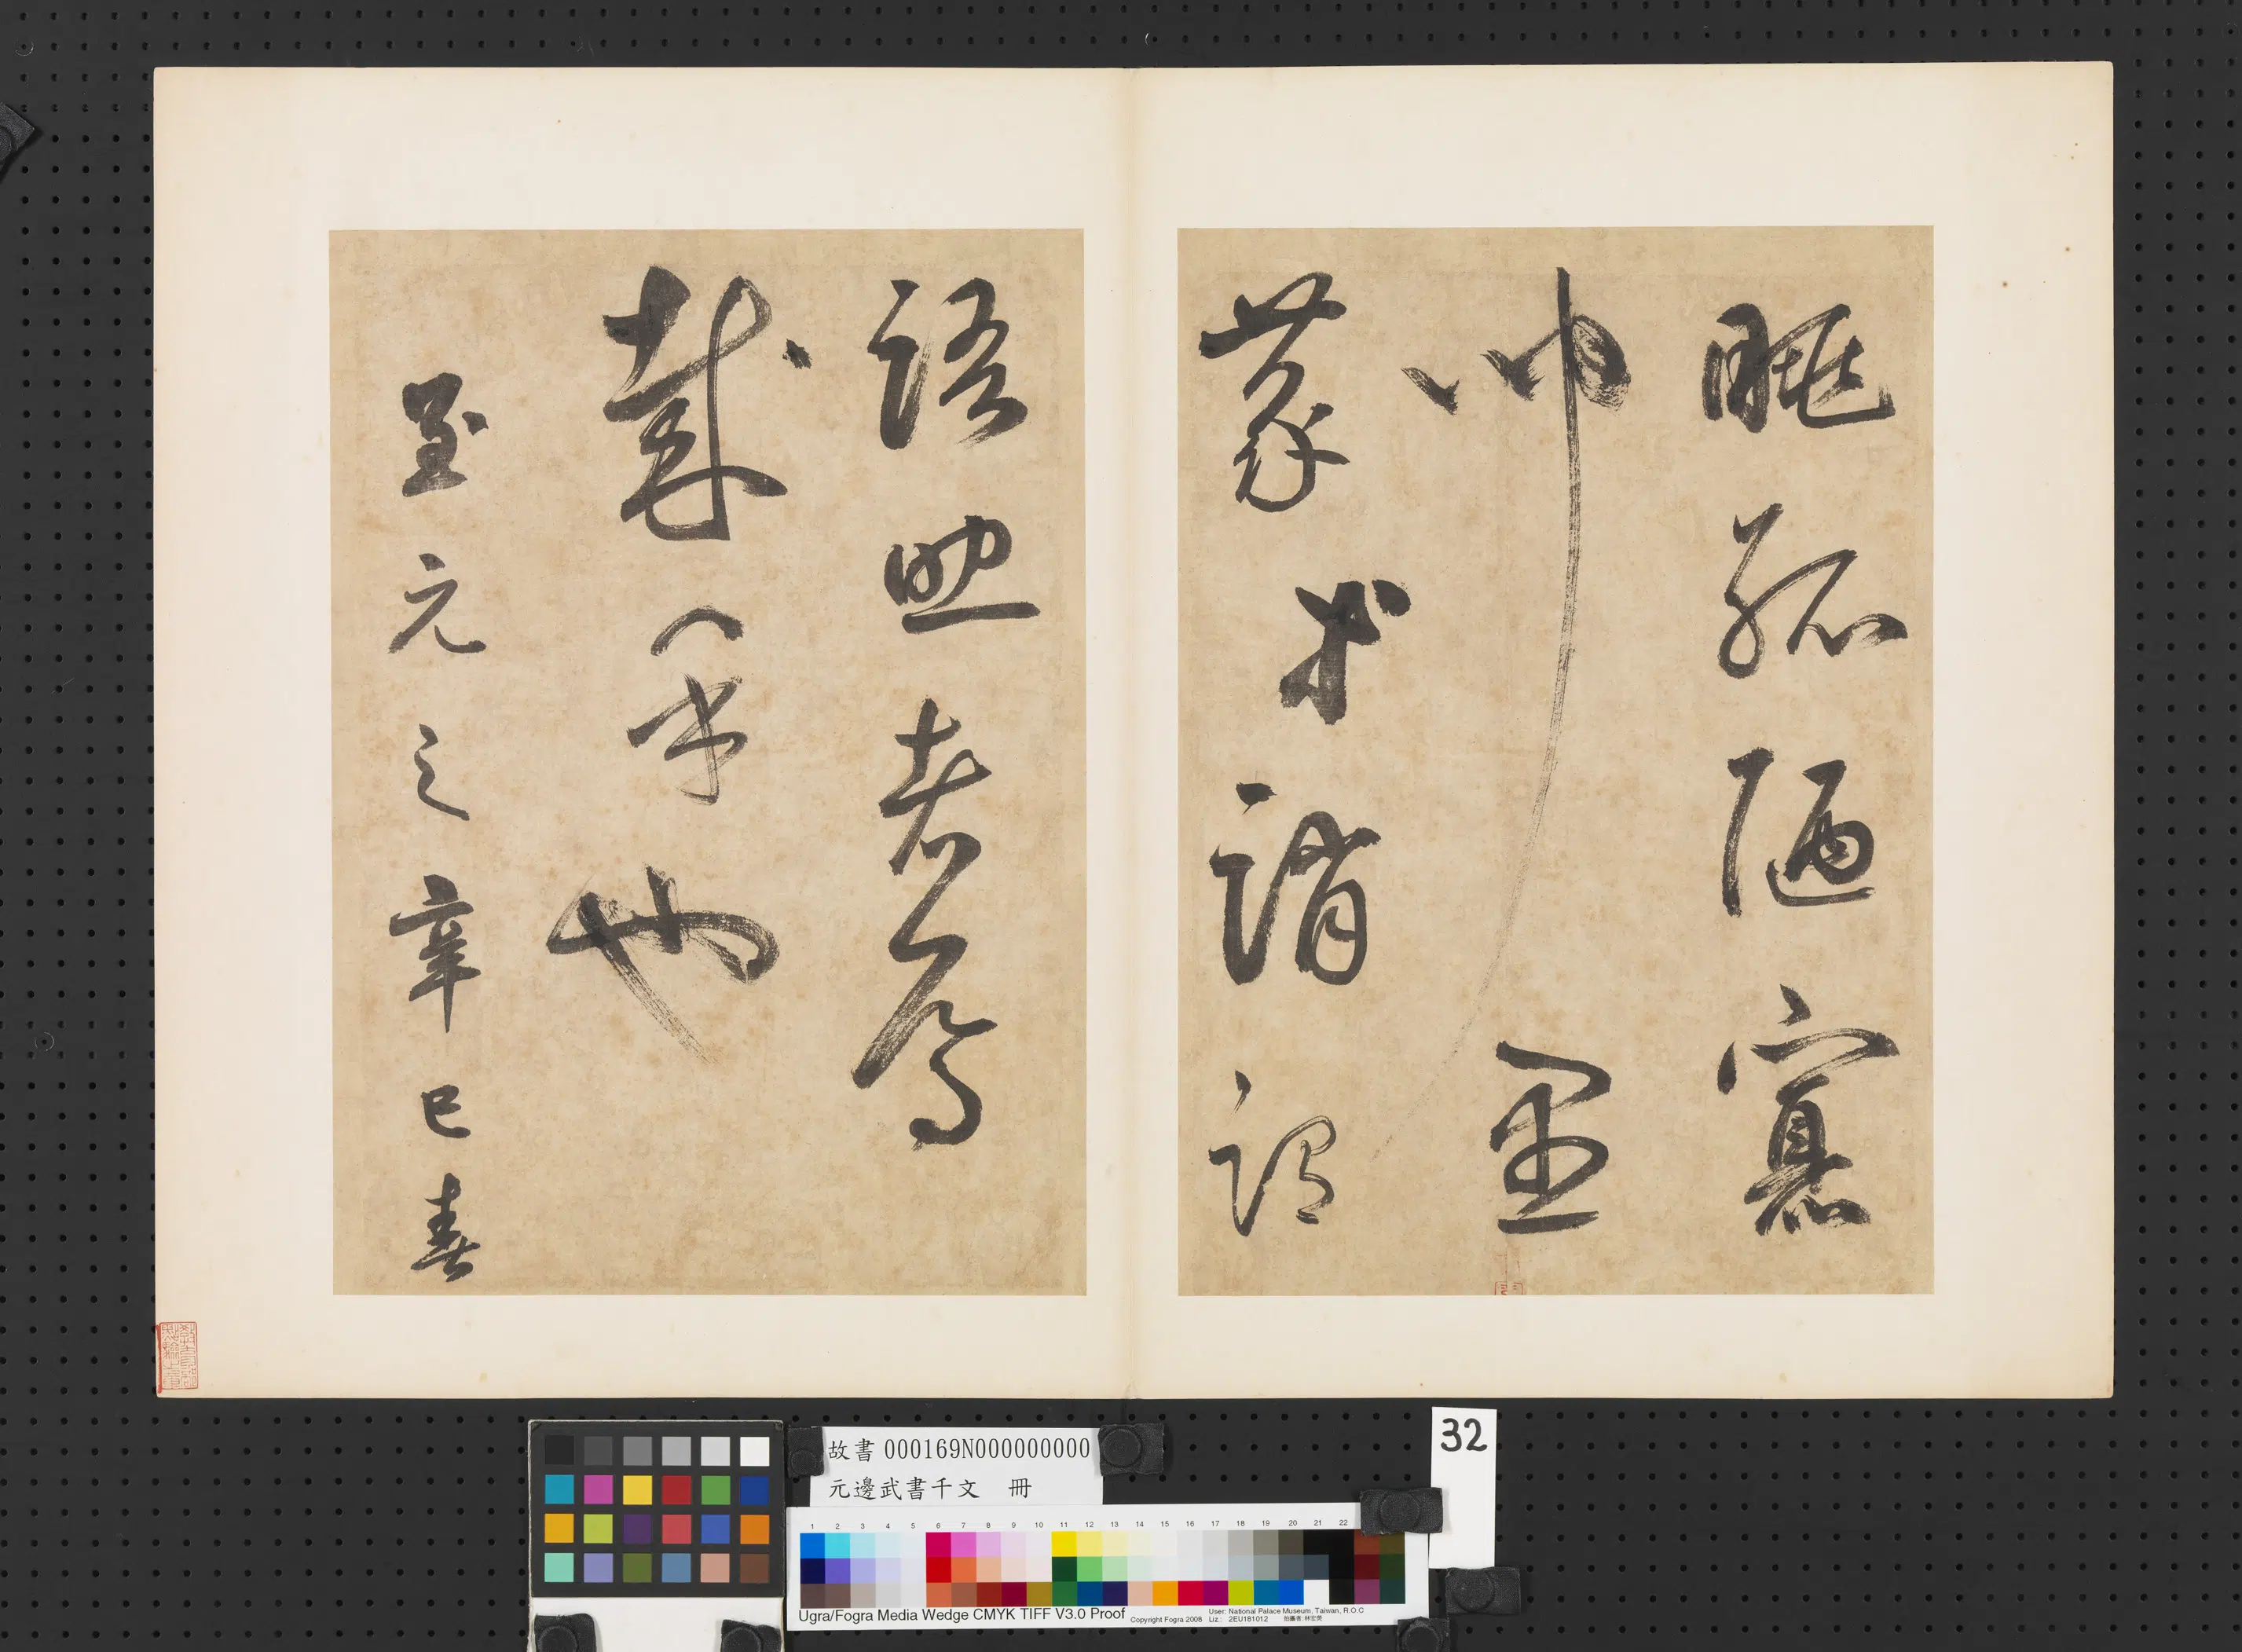 眺孤陋寡
聞愚
蒙等誚謂
語助者焉
哉乎也
至元之辛巳春
故書 000169N000000000
元邊武書千文 冊
32
1 2 3 4 5 6 7 8 9 10 11 12 13 14 15 16 17 18 19 20 21 22
Ugra/Fogra Media Wedge CMYK TIFF V3.0 Proof
Copyright Fogra 2008
User: National Palace Museum, Taiwan, R.O.C
Liz.: 2EU181012